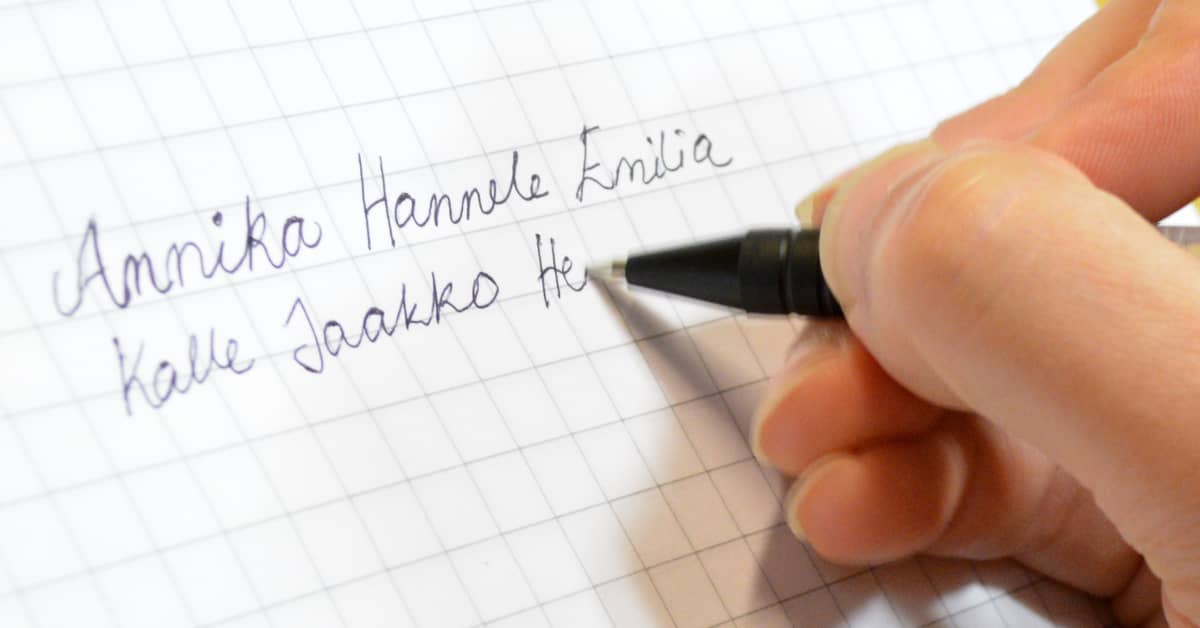 Annika Hannele Emilia
Kalle Jaakko He